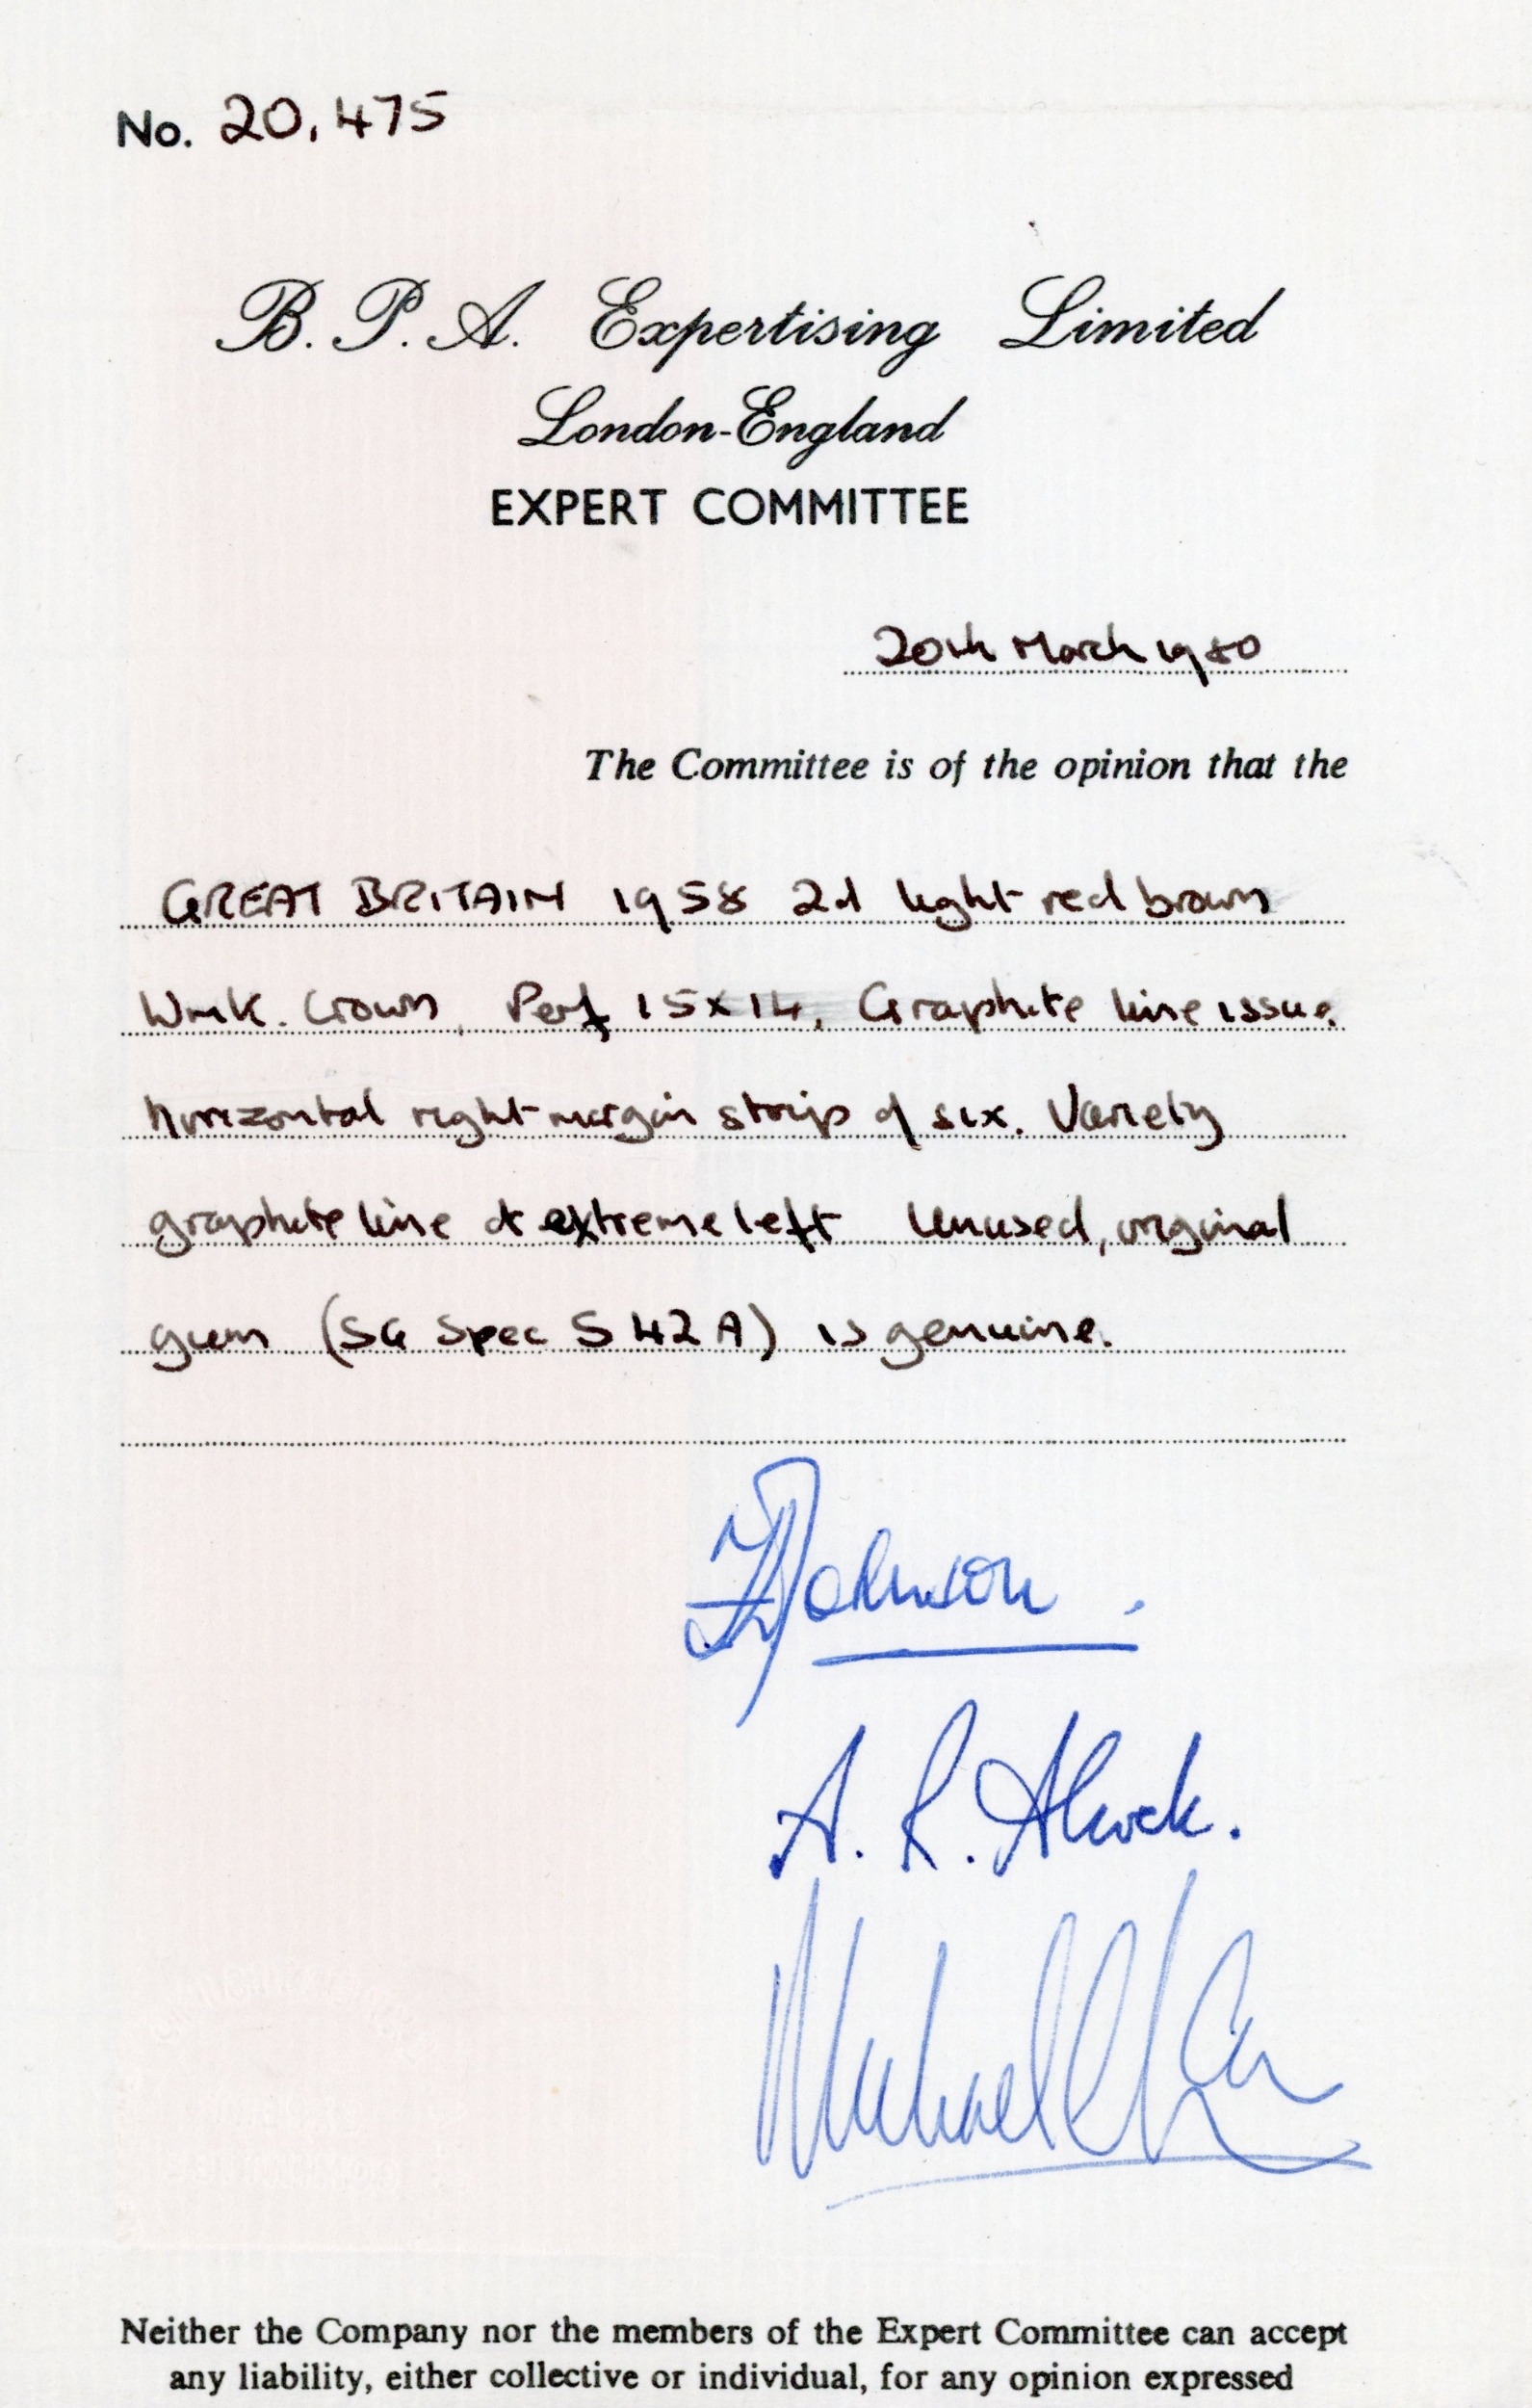 No. 20,475
B. P. A. Expertising Limited
London-England
EXPERT COMMITTEE
20th March 1980
The Committee is of the opinion that the
GREAT BRITAIN 1958 2d light red brown
Wmk. Crown, Perf 15x14, Graphite line issue.
horizontal right margin strip of six. Variety
graphite line at extreme left Unused, original
gum (SG Spec S 42 A) is genuine.
Johnson.
A. R. Alcock.
Michael
Neither the Company nor the members of the Expert Committee can accept
any liability, either collective or individual, for any opinion expressed